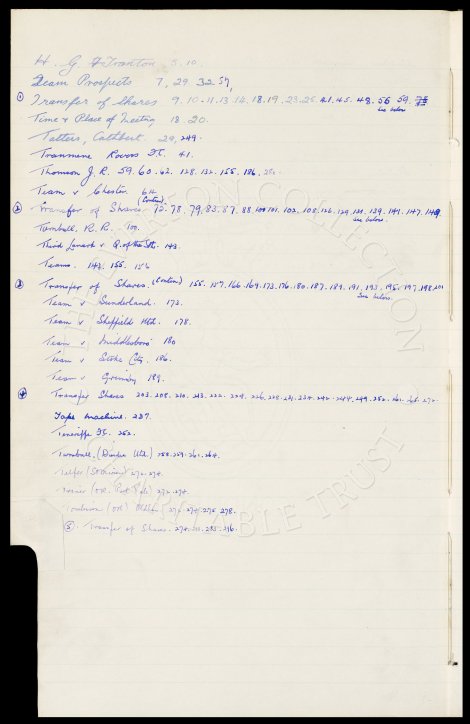 H. G. Trenton 5.10.
Team Prospects 7, 29. 32 59,
① Transfer of Shares 9. 10. 11. 13. 14. 18. 19. 23. 25. 41. 45. 48. 56 59.
see below
Time & Place of Meeting 18. 20.
Tatters, Cuthbert 29, 249.
Tranmere Rovers F.C. 41.
Thomson J. R. 59. 60. 62. 128. 132. 155. 186.
Team v Chester 64
② Transfer of Shares (Contin) 72. 78. 79. 83. 87. 88 100 101. 103. 108. 126. 129. 139. 141. 147. 149.
see below.
Turnbull, R. R. 100.
Third Lanark v Q. of the Sth. 143.
Teams. 143. 155. 156
③ Transfer of Shares. (Contin) 155. 157. 166. 169. 173. 176. 180. 187. 189. 191. 193. 195. 197. 198. 201
See below.
Team v Sunderland. 173.
Team v Sheffield Utd. 178.
Team v Middlesboro' 180
Team v Stoke City. 186.
Team v Grimsby 189.
④ Transfer Shares 203. 208. 210. 213. 222. 224. 226. 228. 231. 234. 242. 244. 249. 252. 261. 265. 272.
Tape Machine. 237.
Teneriffe F.C. 252.
Turnbull. 258. 259. 261. 264.
Telfer (St Mirren) 272. 274.
272. 274.
272. 274. 275. 278.
⑤ Transfer of Shares. 274. 285. 296.
COLLECTION
TRUST